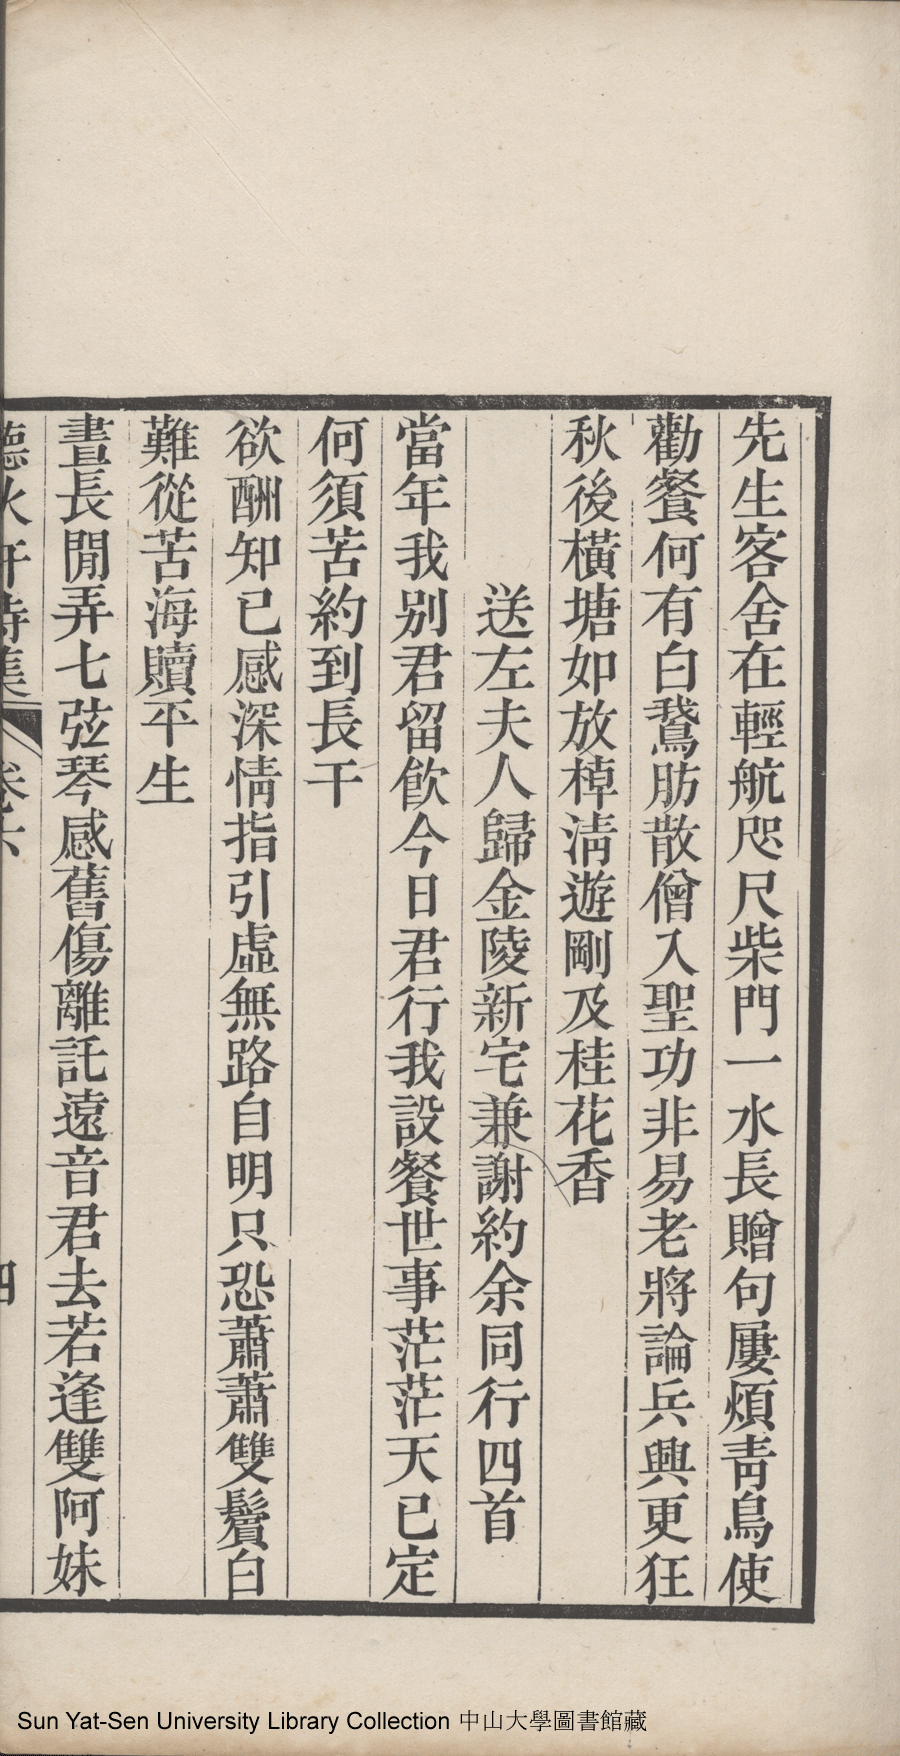 先生客舍在輕航咫尺柴門一水長贈句屢煩靑鳥使
勸餐何有白鵞肪散僧入聖功非易老將論兵興更狂
秋後橫塘如放棹淸遊剛及桂花香
送左夫人歸金陵新宅兼謝約余同行四首
當年我別君留飮今日君行我設餐世事茫茫天已定
何須苦約到長干
欲酬知已感深情指引虛無路自明只恐蕭蕭雙鬢白
難從苦海贖平生
晝長閒弄七弦琴感舊傷離託遠音君去若逢雙阿妹
聽秋軒詩集 卷六 四
Sun Yat-Sen University Library Collection 中山大學圖書館藏